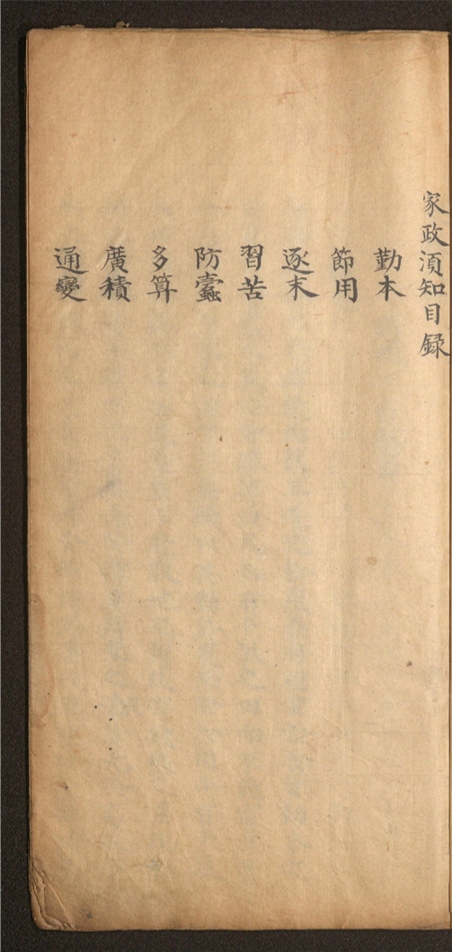 家政須知目録
勤本
節用
逐末
習苦
防蠧
多算
廣積
通變